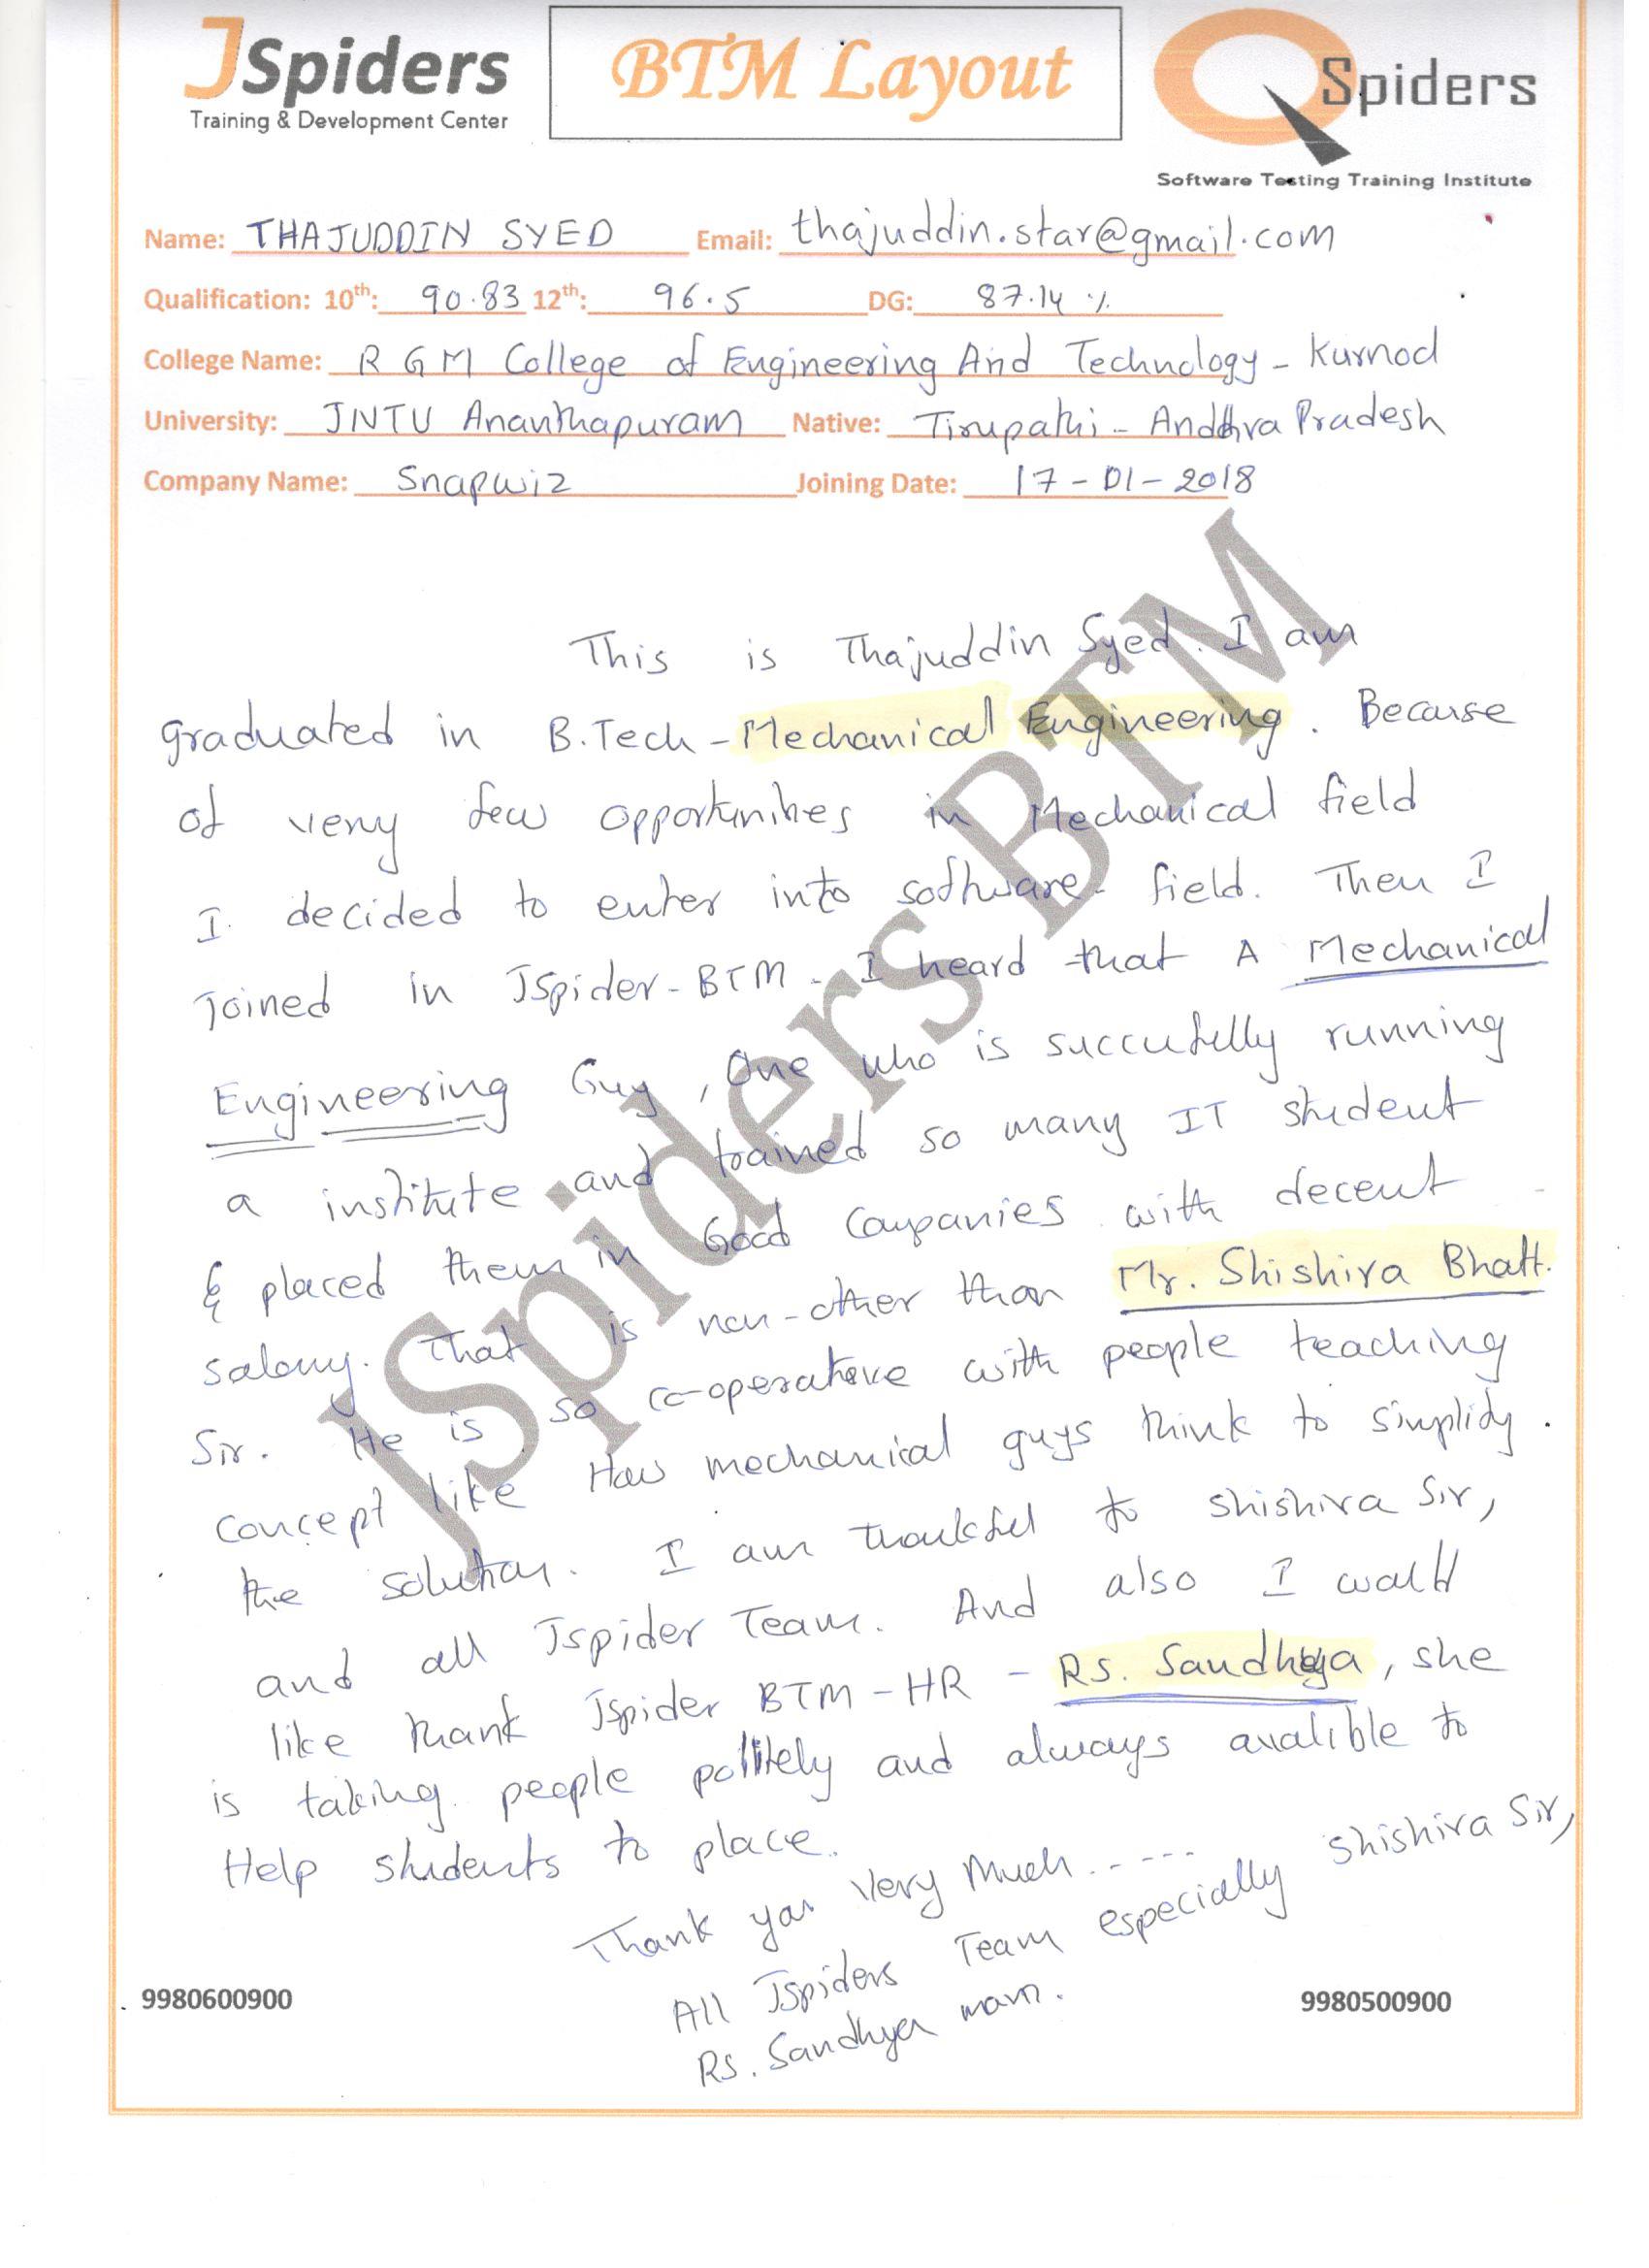 JSpiders
Training & Development Center
BTM Layout
QSpiders
Software Testing Training Institute
Name: THAJUDDIN SYED Email: thajuddin.star@gmail.com
Qualification: 10th: 90.83 12th: 96.5 DG: 87.14 %
College Name: R G M College of Engineering And Technology - Kurnool
University: JNTU Ananthapuram Native: Tirupathi - Andhra Pradesh
Company Name: Snapwiz Joining Date: 17-01-2018
This is Thajuddin Syed. I am
graduated in B.Tech - Mechanical Engineering. Because
of very few opportunities in Mechanical field
I decided to enter into software field. Then I
joined in JSpider-BTM. I heard that A Mechanical
Engineering Guy, One who is succufully running
a institute and trained so many IT student
& placed them in Good Companies with decent
salary. That is non-other than Mr. Shishira Bhatt.
Sir. He is so co-operative with people teaching
concept like How mechanical guys think to simplify.
the solution. I am thankful to Shishira Sir,
and all Jspider Team. And also I would
like thank Jspider BTM-HR - Rs. Sandhya, she
is taking people politely and always avalible to
Help students to place.
Thank you Very Much.....
All Jspiders Team especially Shishira Sir,
Rs. Sandhya mam.
9980600900
9980500900
JSpiders BTM